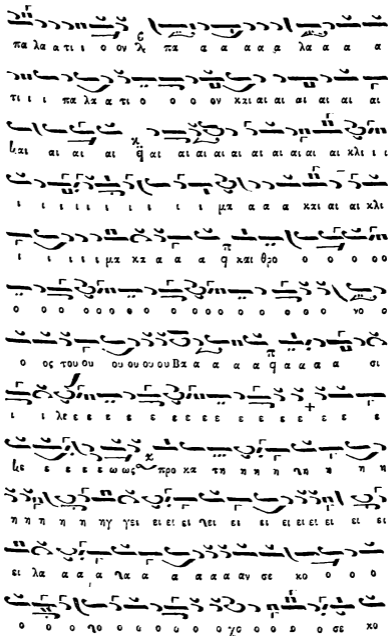 πα λα α τι ι ο ον λε πα α α α α λα α α α
τι ι ι πα λα α τι ο ο ο ον και αι αι αι αι αι αι
και αι αι αι q αι αι αι αι αι αι αι αι αι αι κλι ι ι
ι ι ι ι ι ι ι ι ι μα α α α και αι αι κλι
ι ι ι ι ι μα κα α α α q και θρο ο ο ο ο ο
ο ο ο ο ο ο ο ο ο ο ο ο ο ο ο ο νο ο
ο ος του ου ου ου ου ου Βα α α α α q α α α α σι
ι ι λε ε ε ε ε ε ε ε ε ε ε ε ε ε ε ε
ε ε ε ε ω ως προ κα τη η η η η η η
η η η η η ηγ γει ει ει ει ει ει ει ει ει ει ει
ει λα α α α α α α α α αν σε κο ο ο ο
ο ο ο ο ο ο ο ο ο χο ο ο ο ο σε κο